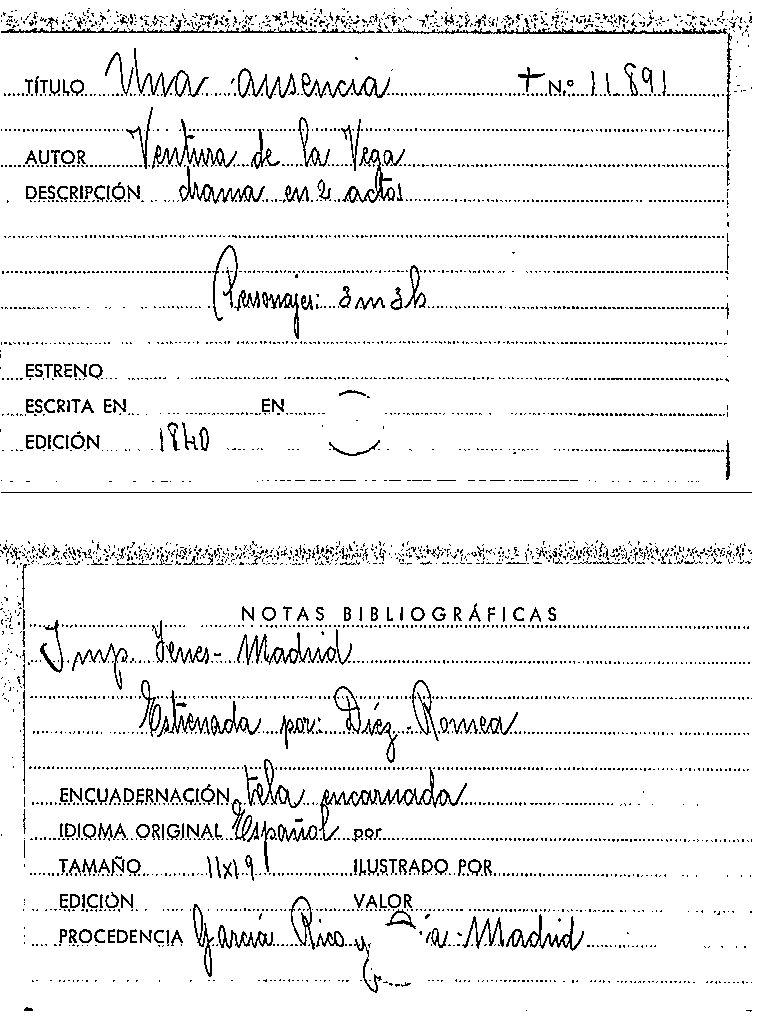 TÍTULO Una ausencia + N.º 11891
AUTOR Ventura de la Vega
DESCRIPCIÓN drama en 2 actos
Personajes: 3m 3h
ESTRENO
ESCRITA EN EN
EDICIÓN 1840
NOTAS BIBLIOGRÁFICAS
Imp. Yenes - Madrid
Estrenada por: Díez - Romea
ENCUADERNACIÓN tela encarnada
IDIOMA ORIGINAL Español por
TAMAÑO 11x19 ILUSTRADO POR
EDICIÓN VALOR
PROCEDENCIA García Rico y Cía - Madrid